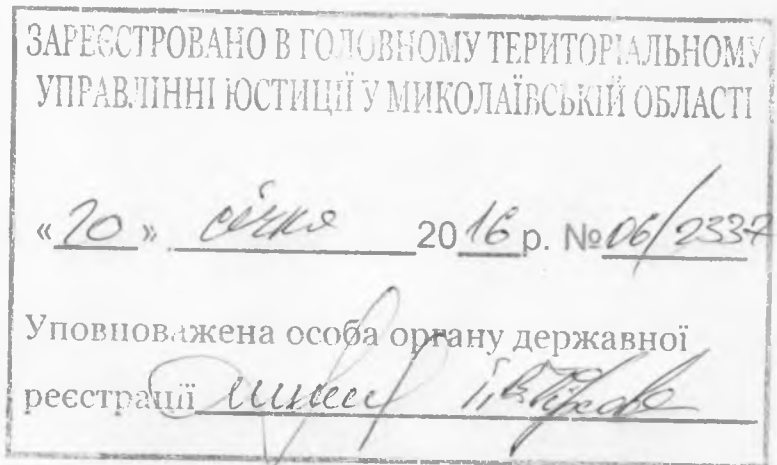 ЗАРЕЄСТРОВАНО В ГОЛОВНОМУ ТЕРИТОРІАЛЬНОМУ
УПРАВЛІННІ ЮСТИЦІЇ У МИКОЛАЇВСЬКІЙ ОБЛАСТІ
«20» січня 2016 р. №06/2337
Уповноважена особа органу державної
реєстрації